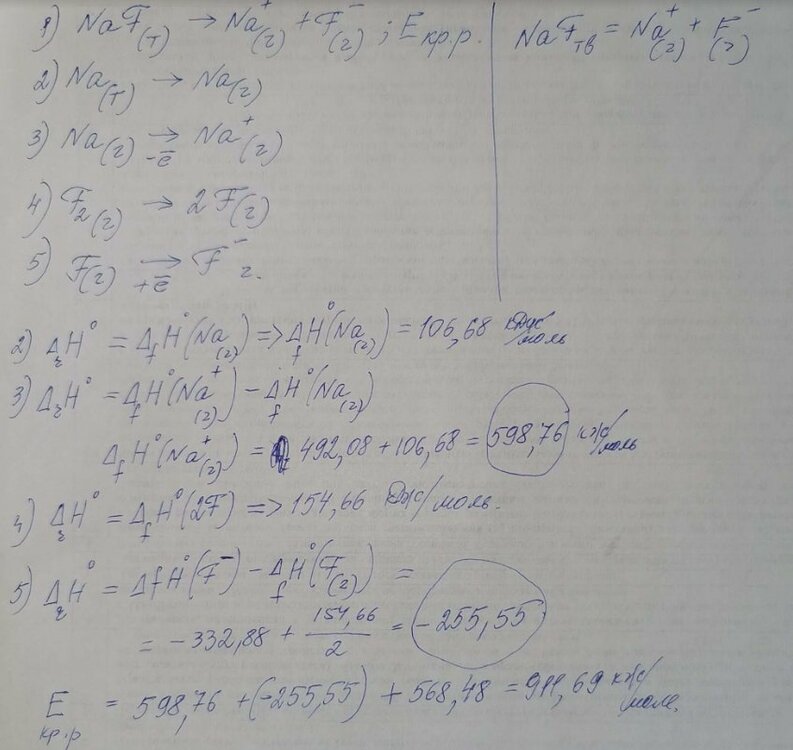 1) NaF(т) → Na⁺(г) + F⁻(г) ; E кр.р.
NaFтв = Na⁺(г) + F⁻(г)
2) Na(т) → Na(г)
3) Na(г) →-ē Na⁺(г)
4) F₂(г) → 2F(г)
5) F(г) →+ē F⁻г.
2) ΔrH° = ΔfH°(Na(г)) => ΔfH°(Na(г)) = 106,68 кДж/моль
3) ΔrH° = ΔfH°(Na⁺(г)) - ΔfH°(Na(г))
ΔfH°(Na⁺(г)) = 492,08 + 106,68 = 598,76 кДж/моль
4) ΔrH° = ΔfH°(2F) => 154,66 Дж/моль.
5) ΔrH° = ΔfH°(F⁻) - ΔfH°(F(г)) =
= -332,88 + 154,66/2 = -255,55
Eкр.р = 598,76 + (-255,55) + 568,48 = 911,69 кДж/моль.